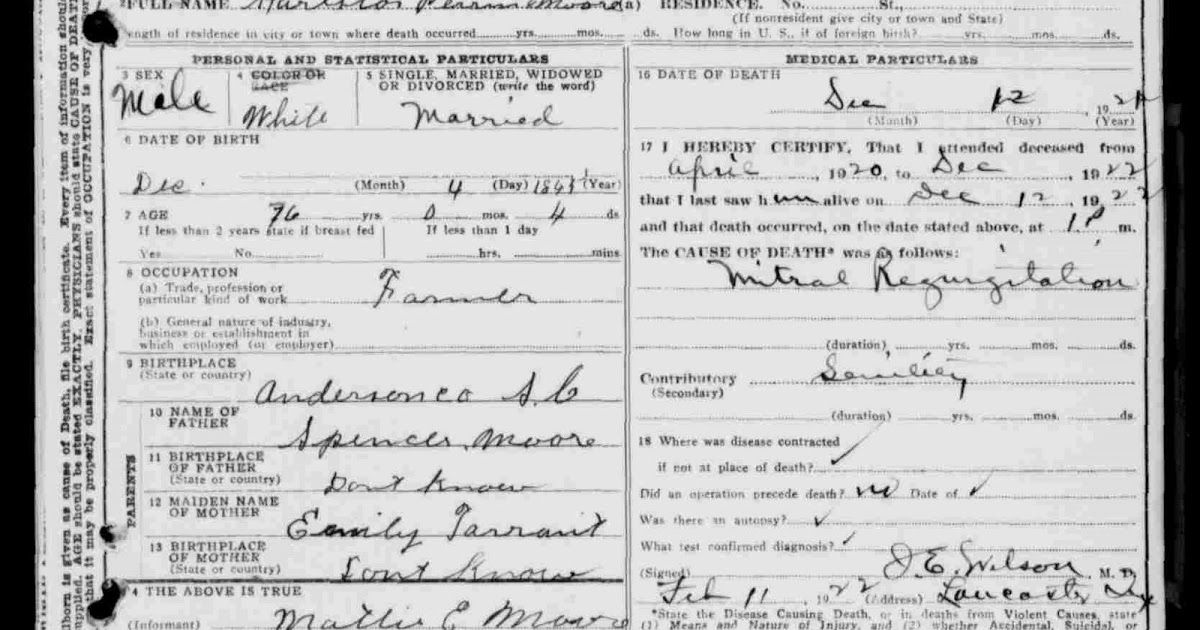 FULL NAME Perrin Moore (a) RESIDENCE. No. St.,
(If nonresident give city or town and State)
ength of residence in city or town where death occurred yrs. mos. ds. How long in U. S., if of foreign birth? yrs. mos. ds.
PERSONAL AND STATISTICAL PARTICULARS
3 SEX
Male
4 COLOR OR RACE
White
5 SINGLE, MARRIED, WIDOWED
OR DIVORCED (write the word)
Married
6 DATE OF BIRTH
Dec. (Month) 4 (Day) (Year)
7 AGE 76 yrs. 0 mos. 4 ds
If less than 2 years state if breast fed
If less than 1 day
Yes No.
hrs. mins
8 OCCUPATION
(a) Trade, profession or
particular kind of work
Farmer
(b) General nature of industry,
business or establishment in
which employed (or employer)
9 BIRTHPLACE
(State or country)
Anderson co S.C
PARENTS
10 NAME OF
FATHER
Spencer Moore
11 BIRTHPLACE
OF FATHER
(State or country)
Dont Know
12 MAIDEN NAME
OF MOTHER
Emily Tarrant
13 BIRTHPLACE
OF MOTHER
(State or country)
Dont Know
4 THE ABOVE IS TRUE
(Informant) Mattie E Moore
MEDICAL PARTICULARS
16 DATE OF DEATH
Dec 12 192
(Month) (Day) (Year)
17 I HEREBY CERTIFY, That I attended deceased from
April, 1920, to Dec, 1922
that I last saw him alive on Dec 12, 1922
and that death occurred, on the date stated above, at 1 P m.
The CAUSE OF DEATH* was as follows:
Mitral Regurgitation
(duration) yrs. mos. ds.
Contributory Senility
(Secondary)
(duration) yrs. mos. ds.
18 Where was disease contracted
if not at place of death?
Did an operation precede death? no Date of
Was there an autopsy?
What test confirmed diagnosis?
(Signed) J.E. Wilson M. D.
Feb 11, 1922 (Address) Lancaster Tex
*State the Disease Causing Death, or in deaths from Violent Causes, state
(1) Means and Nature of Injury, and (2) whether Accidental, Suicidal, or
lborn is given as cause of Death, file birth certificate. Every item of information shoul
upplied. AGE should be stated EXACTLY. PHYSICIANS should state CAUSE OF DEAT
that it may be properly classified. Exact statement of OCCUPATION is very